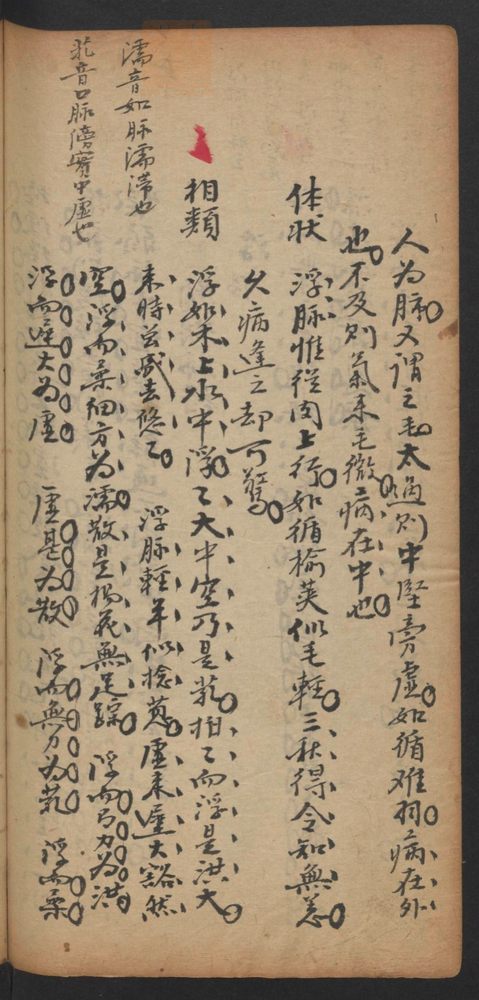 人为脉又谓之毛太過则中堅旁虛如循难羽病在外
也不及则氣来毛微病在中也
体状 浮脉惟從肉上行如循榆莢似毛輕三秋得令知無恙
久病逢之却可驚
相類 浮如木上水中浮浮大中空乃是芤拍拍而浮是洪大
来時虽盛去悠悠 浮脉輕平似捻葱虛来遲大豁然
空浮而柔细方为濡散是楊花無定踪 浮而有力为洪
浮而遲大为虛 虛甚为散 浮而無力为芤 浮而柔
濡音如脉濡滞也
芤音口脉傍實中虛也